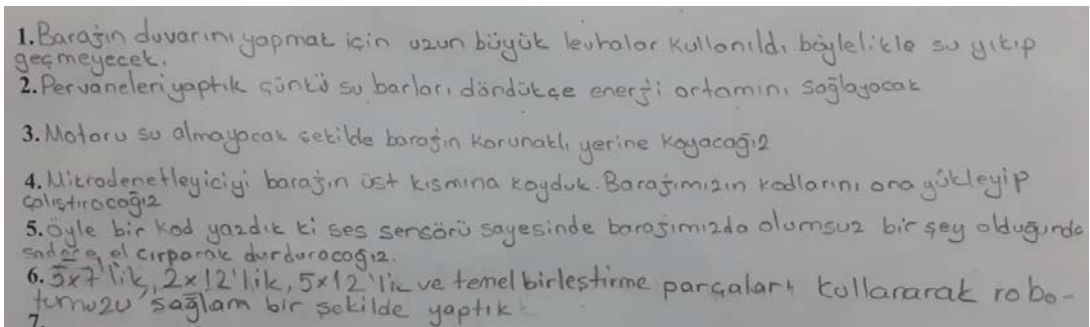 1. Barajın duvarını yapmak için uzun büyük levhalar kullanıldı böylelikle su yıkıp
geçmeyecek.
2. Pervaneleri yaptık çünkü su barları döndükçe enerji ortamını sağlayacak
3. Motoru su almayacak şekilde barajın korunaklı yerine koyacağız
4. Mikrodenetleyiciyi barajın üst kısmına koyduk. Barajımızın kodlarını ona yükleyip
çalıştıracağız
5. Öyle bir kod yazdık ki ses sensörü sayesinde barajımızda olumsuz bir şey olduğunda
sadece el çırparak durduracağız.
6. 5x7'lik, 2x12'lik, 5x12'lik ve temel birleştirme parçaları kullanarak robo-
tumuzu sağlam bir şekilde yaptık
7.